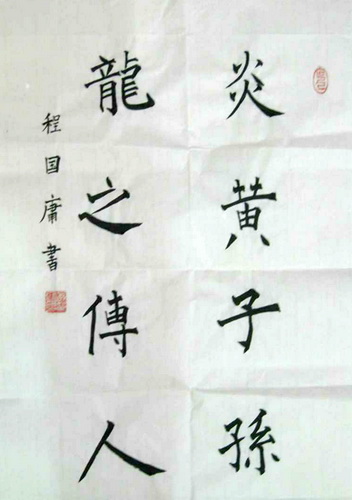 炎黄子孫
龍之傳人
程国庸書